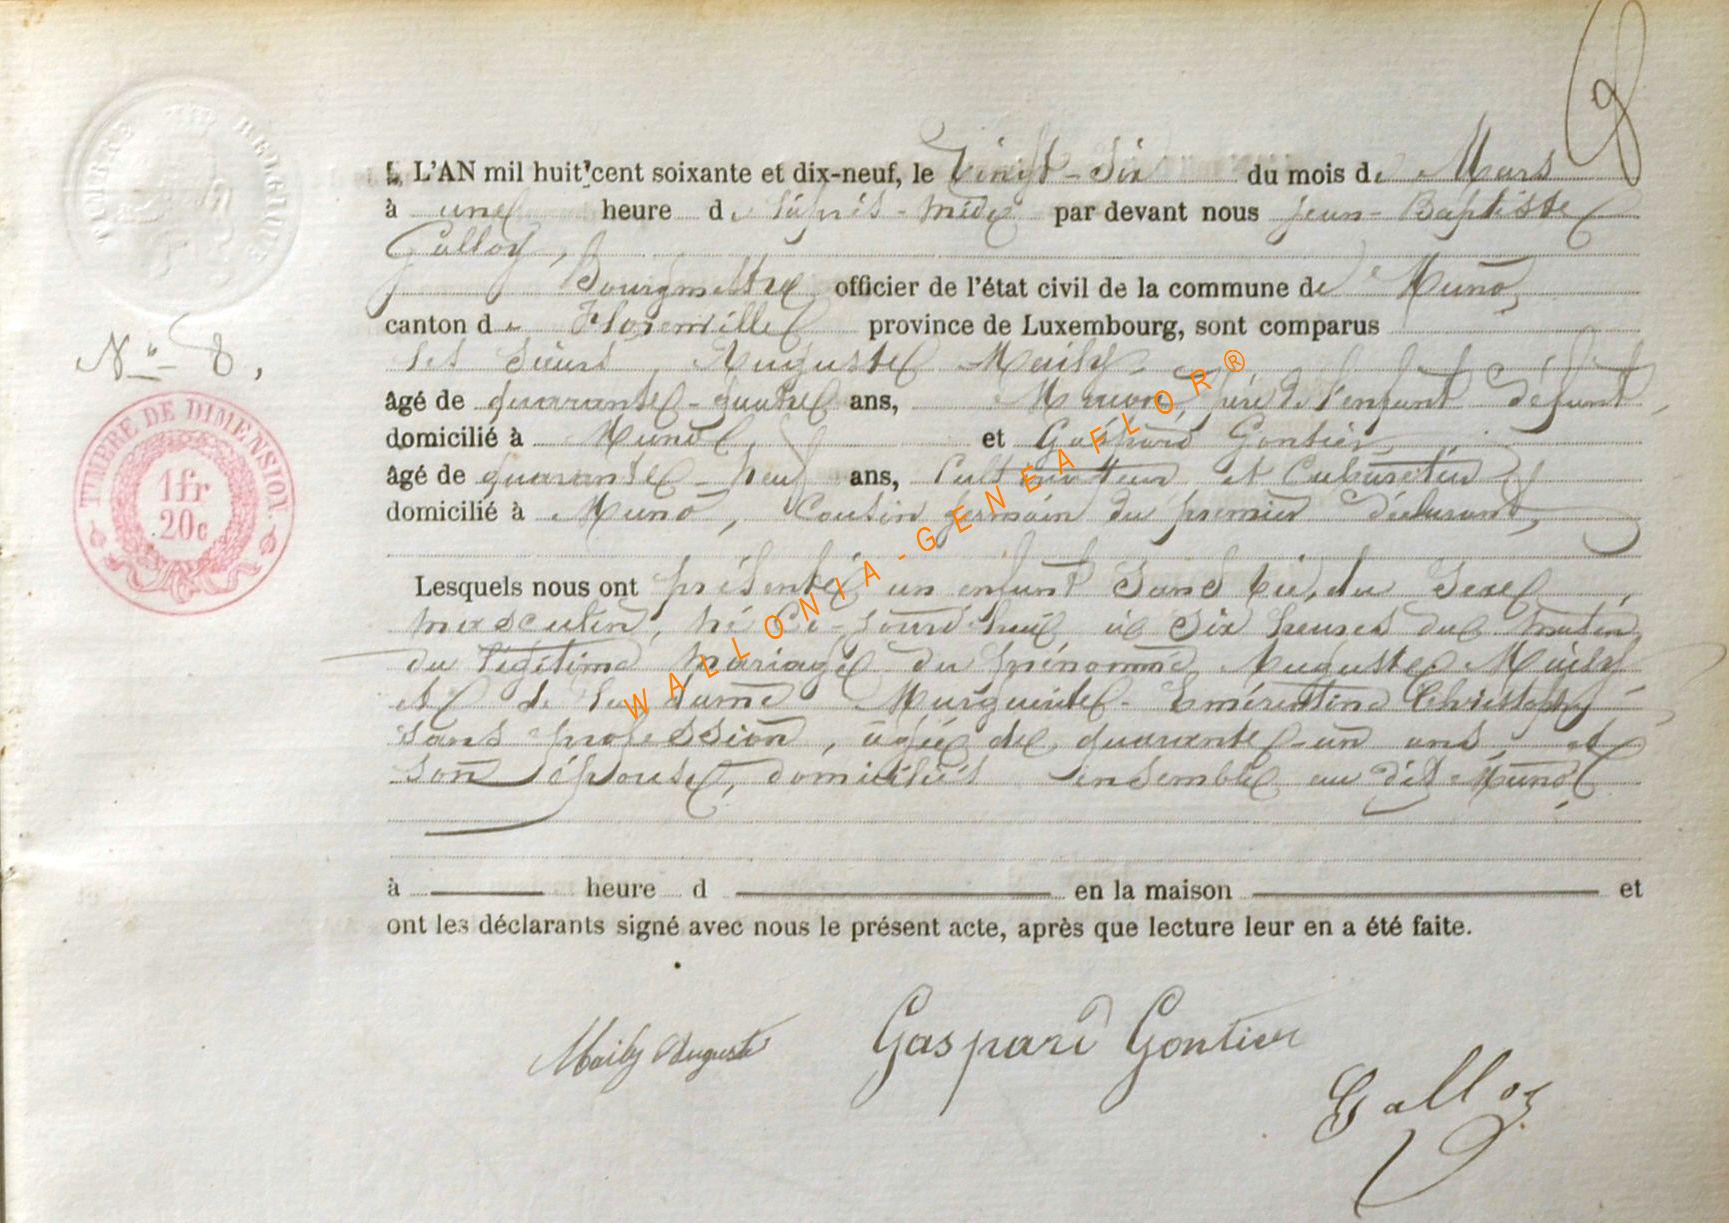 8
L'AN mil huit cent soixante et dix-neuf, le Vingt-Six du mois de Mars
à une heure de l'après-midi par devant nous Jean-Baptiste
Galloy,
Bourgmestre officier de l'état civil de la commune de Muno,
canton de Florenville province de Luxembourg, sont comparus
N° 8,
les sieurs, Auguste Maily
âgé de quarante-quatre ans, père de l'enfant défunt,
domicilié à Muno, et Gaspard Gontier,
âgé de quarante-neuf ans, Cultivateur et Cabaretier
domicilié à Muno, Cousin germain du premier déclarant,
Lesquels nous ont présenté un enfant Sans vie, du Sexe
masculin, né ce-jourd'hui à Six heures du matin,
du légitime mariage du prénommé Auguste Maily
et de la dame Marguerite-Émérentine Christophe
sans profession, âgée de quarante-un ans, et
son épouse, domiciliés ensemble au dit Muno
à heure d en la maison et
ont les déclarants signé avec nous le présent acte, après que lecture leur en a été faite.
Maily Auguste
Gaspard Gontier
Galloy
TIMBRE DE DIMENSION
1fr
20c
WALLONIA-GENEAFLOR®